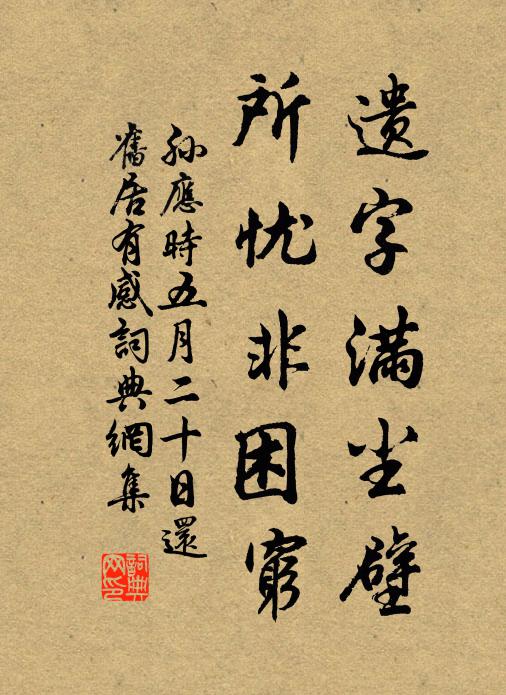 遗字满尘壁
所忧非困穷
孙應時五月二十日還
舊居有感詞典網集
詞典网印